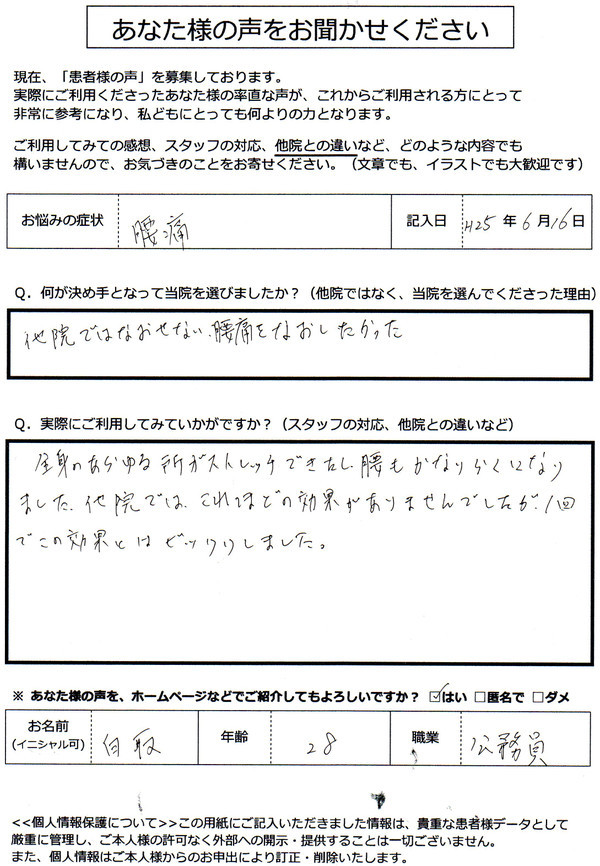 あなた様の声をお聞かせください
現在、「患者様の声」を募集しております。
実際にご利用くださったあなた様の率直な声が、これからご利用される方にとって
非常に参考になり、私どもにとっても何よりの力となります。
ご利用してみての感想、スタッフの対応、他院との違いなど、どのような内容でも
構いませんので、お気づきのことをお寄せください。（文章でも、イラストでも大歓迎です）
お悩みの症状 腰痛 記入日 H25年6月16日
Q．何が決め手となって当院を選びましたか？（他院ではなく、当院を選んでくださった理由）
他院ではなおせない、腰痛をなおしたかった
Q．実際にご利用してみていかがですか？（スタッフの対応、他院との違いなど）
全身のあらゆる所がストレッチできたし、腰もかなりらくになり
ました。他院では、これほどの効果がありませんでしたが、1回
でこの効果とはビックリしました。
※ あなた様の声を、ホームページなどでご紹介してもよろしいですか？ ☑はい □匿名で □ダメ
お名前 白取 年齢 28 職業 公務員
(イニシャル可)
<<個人情報保護について>>この用紙にご記入いただきました情報は、貴重な患者様データとして
厳重に管理し、ご本人様の許可なく外部への開示・提供することは一切ございません。
また、個人情報はご本人様からのお申出により訂正・削除いたします。